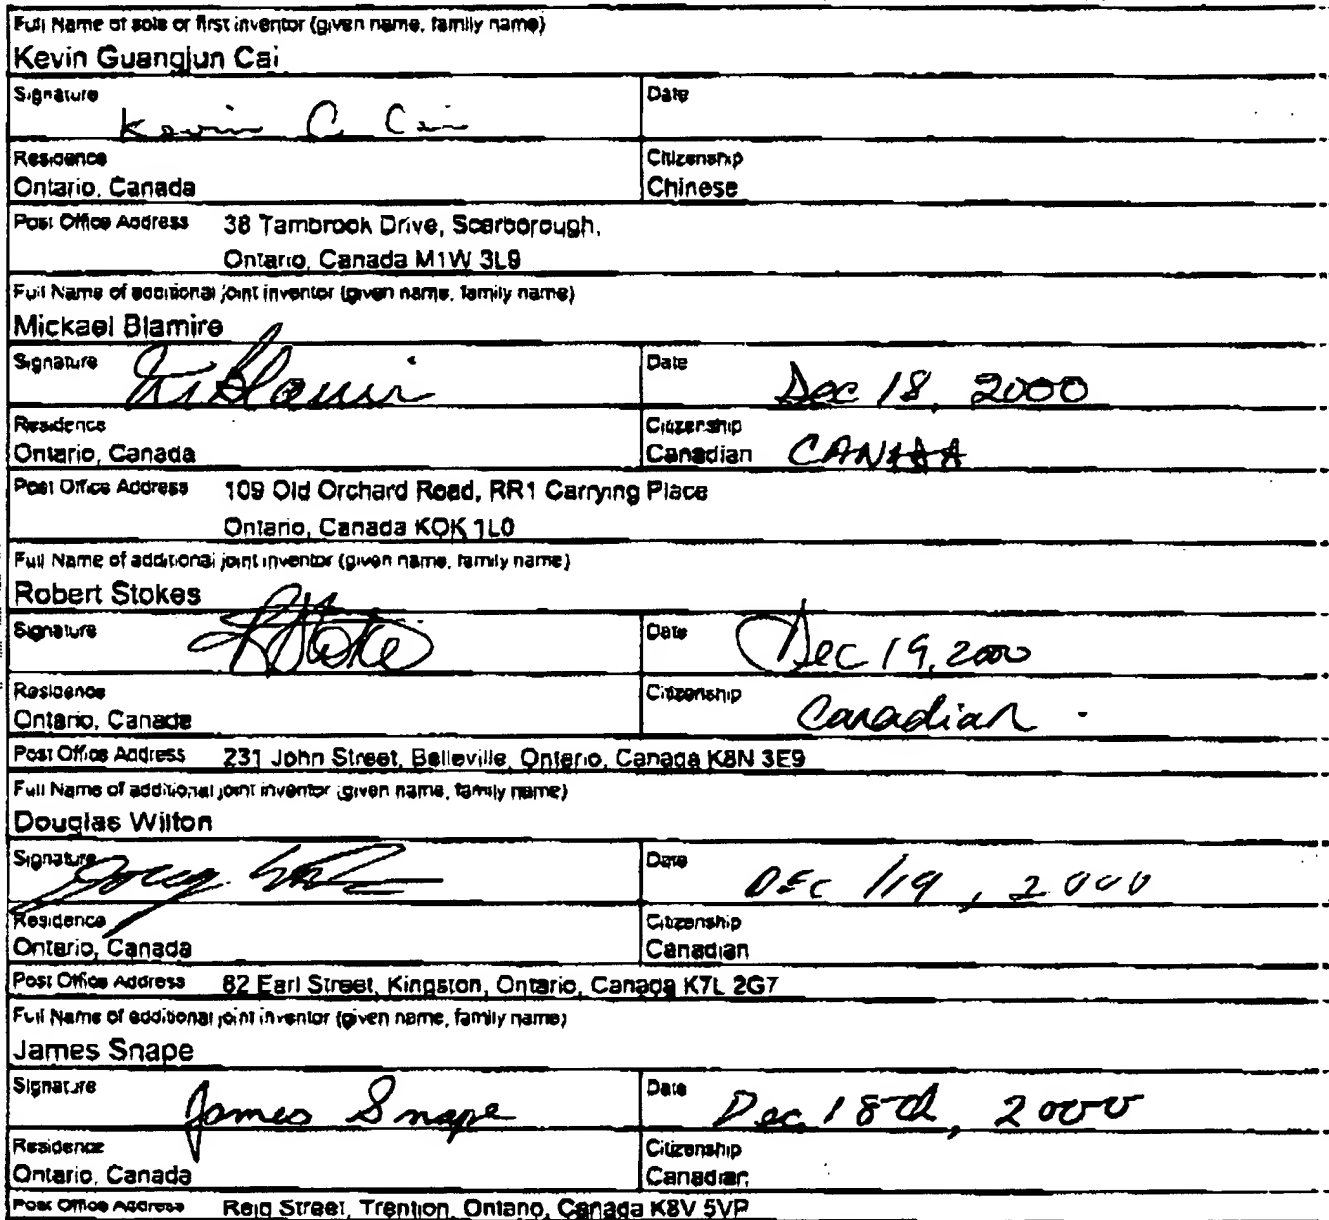 Full Name of sole or first inventor (given name, family name)
Kevin Guangjun Cai
Signature Date
Kevin G Cai
Residence Citizenship
Ontario, Canada Chinese
Post Office Address 38 Tambrook Drive, Scarborough,
Ontario, Canada M1W 3L9
Full Name of additional joint inventor (given name, family name)
Mickael Blamire
Signature Date Dec 18, 2000
Residence Citizenship
Ontario, Canada Canadian CANADA
Post Office Address 109 Old Orchard Road, RR1 Carrying Place
Ontario, Canada KOK 1L0
Full Name of additional joint inventor (given name, family name)
Robert Stokes
Signature Date Dec 19, 2000
Residence Citizenship
Ontario, Canada Canadian
Post Office Address 231 John Street, Belleville, Ontario, Canada K8N 3E9
Full Name of additional joint inventor (given name, family name)
Douglas Wilton
Signature Doug Date DEC /19, 2000
Residence Citizenship
Ontario, Canada Canadian
Post Office Address 82 Earl Street, Kingston, Ontario, Canada K7L 2G7
Full Name of additional joint inventor (given name, family name)
James Snape
Signature James Snape Date Dec 18th, 2000
Residence Citizenship
Ontario, Canada Canadian
Post Office Address Reid Street, Trention, Ontario, Canada K8V 5VP